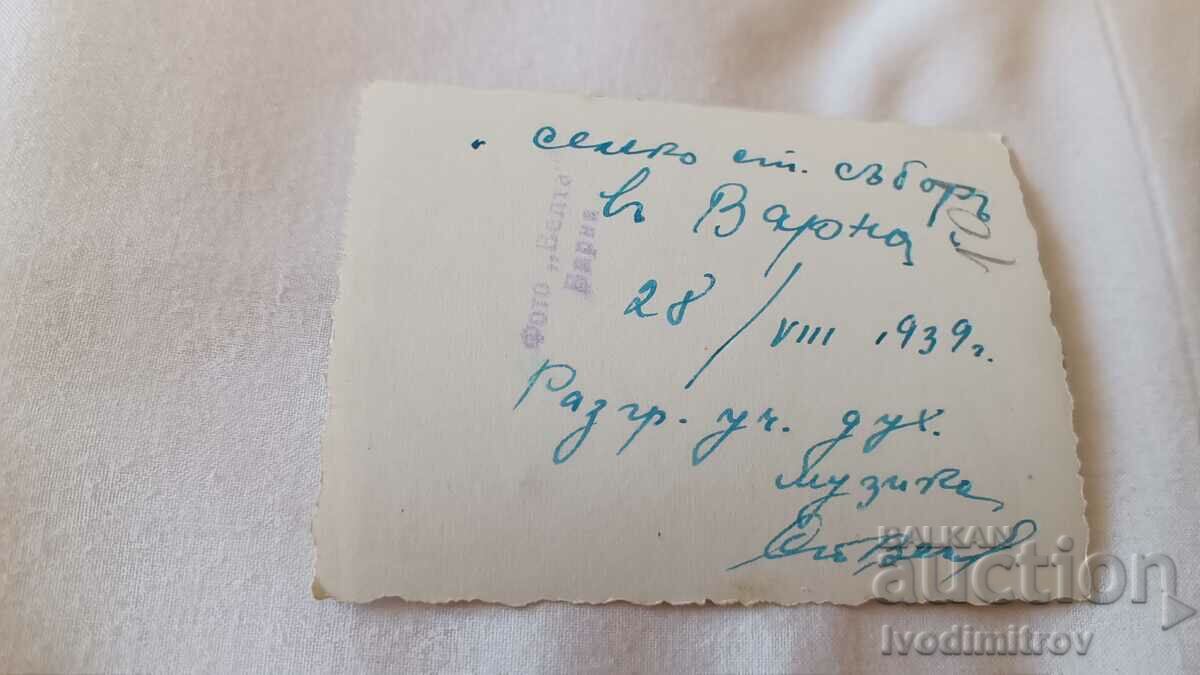 ст. съборъ
въ Варна
28 / VIII 1939 г.
Разгр. уч. дух.
музика
Фото
Варна
101
BALKAN
auction
Ivodimitrov